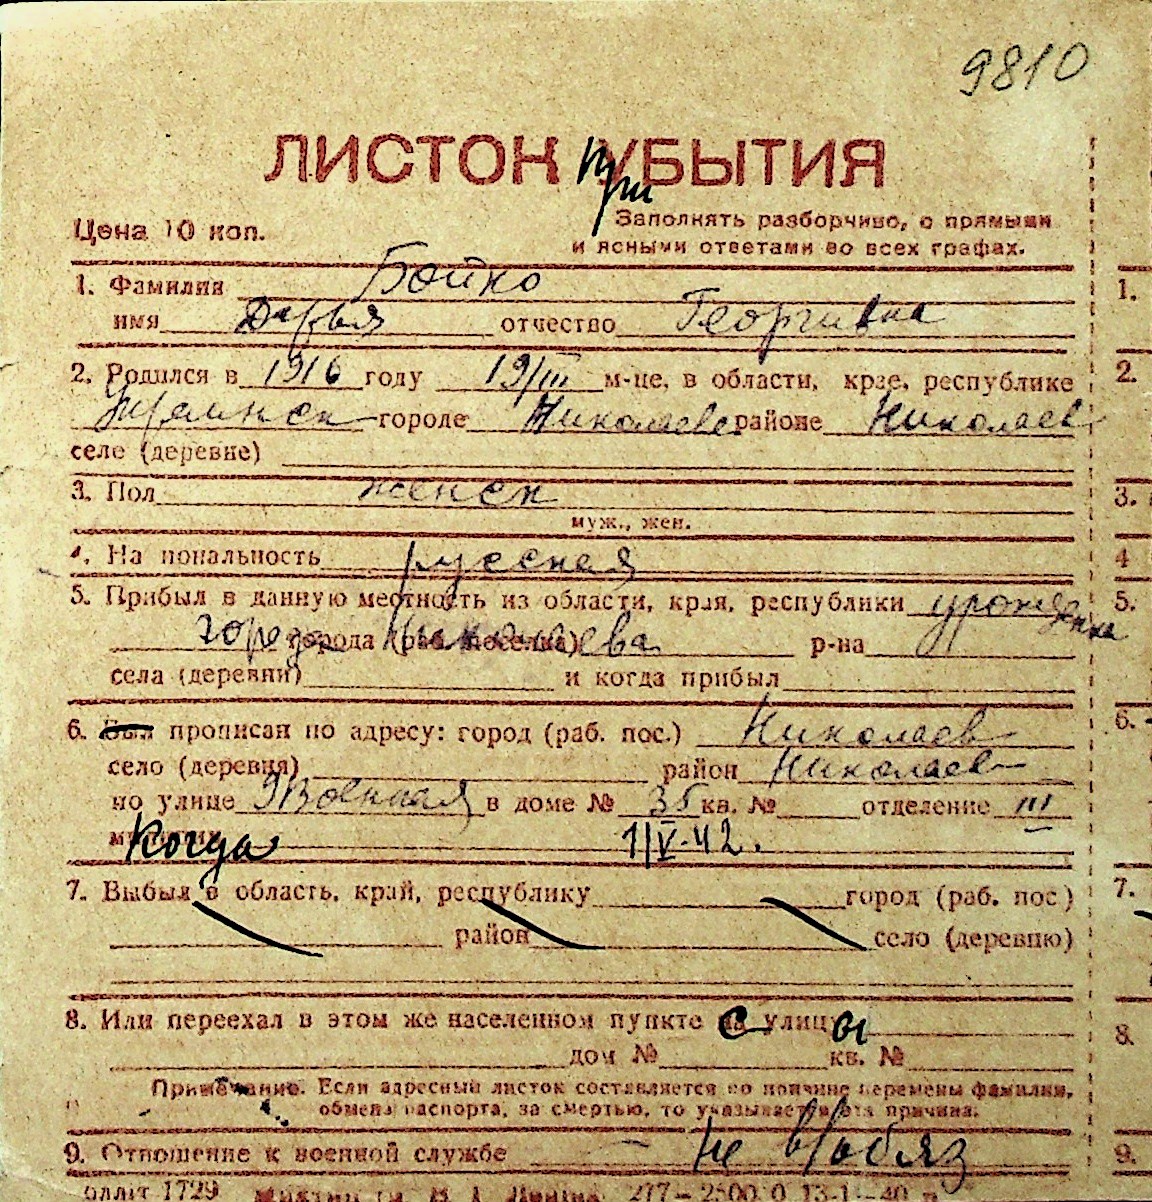 9810
ЛИСТОК ПриБЫТИЯ
Цена 10 коп.
Заполнять разборчиво, с прямыми
и ясными ответами во всех графах.
1. Фамилия Бойко
имя Дарья отчество Георгивна
2. Родился в 1916 году 19/III м-це, в области, крае, республике
городе Николаеве районе Николаев
селе (деревне)
3. Пол женск
муж., жен.
4. Национальность русская
5. Прибыл в данную местность из области, края, республики урожденка
города города (раб. поселка) Николаева р-на
села (деревни) и когда прибыл
6. Был прописан по адресу: город (раб. пос.) Николаев
село (деревня) район Николаев
по улице Военная в доме № 35 кв. № отделение III
Когда 1/V-42.
7. Выбыл в область, край, республику город (раб. пос)
район село (деревню)
8. Или переехал в этом же населенном пункте с улицы
дом № кв. №
Примечание. Если адресный листок составляется по причине перемены фамилии,
обмена паспорта, за смертью, то указывается эта причина.
9. Отношение к военной службе не в/обяз
1729 277—2500.0 13-1—40
1.
2.
3.
4
5.
6.
7.
8.
9.